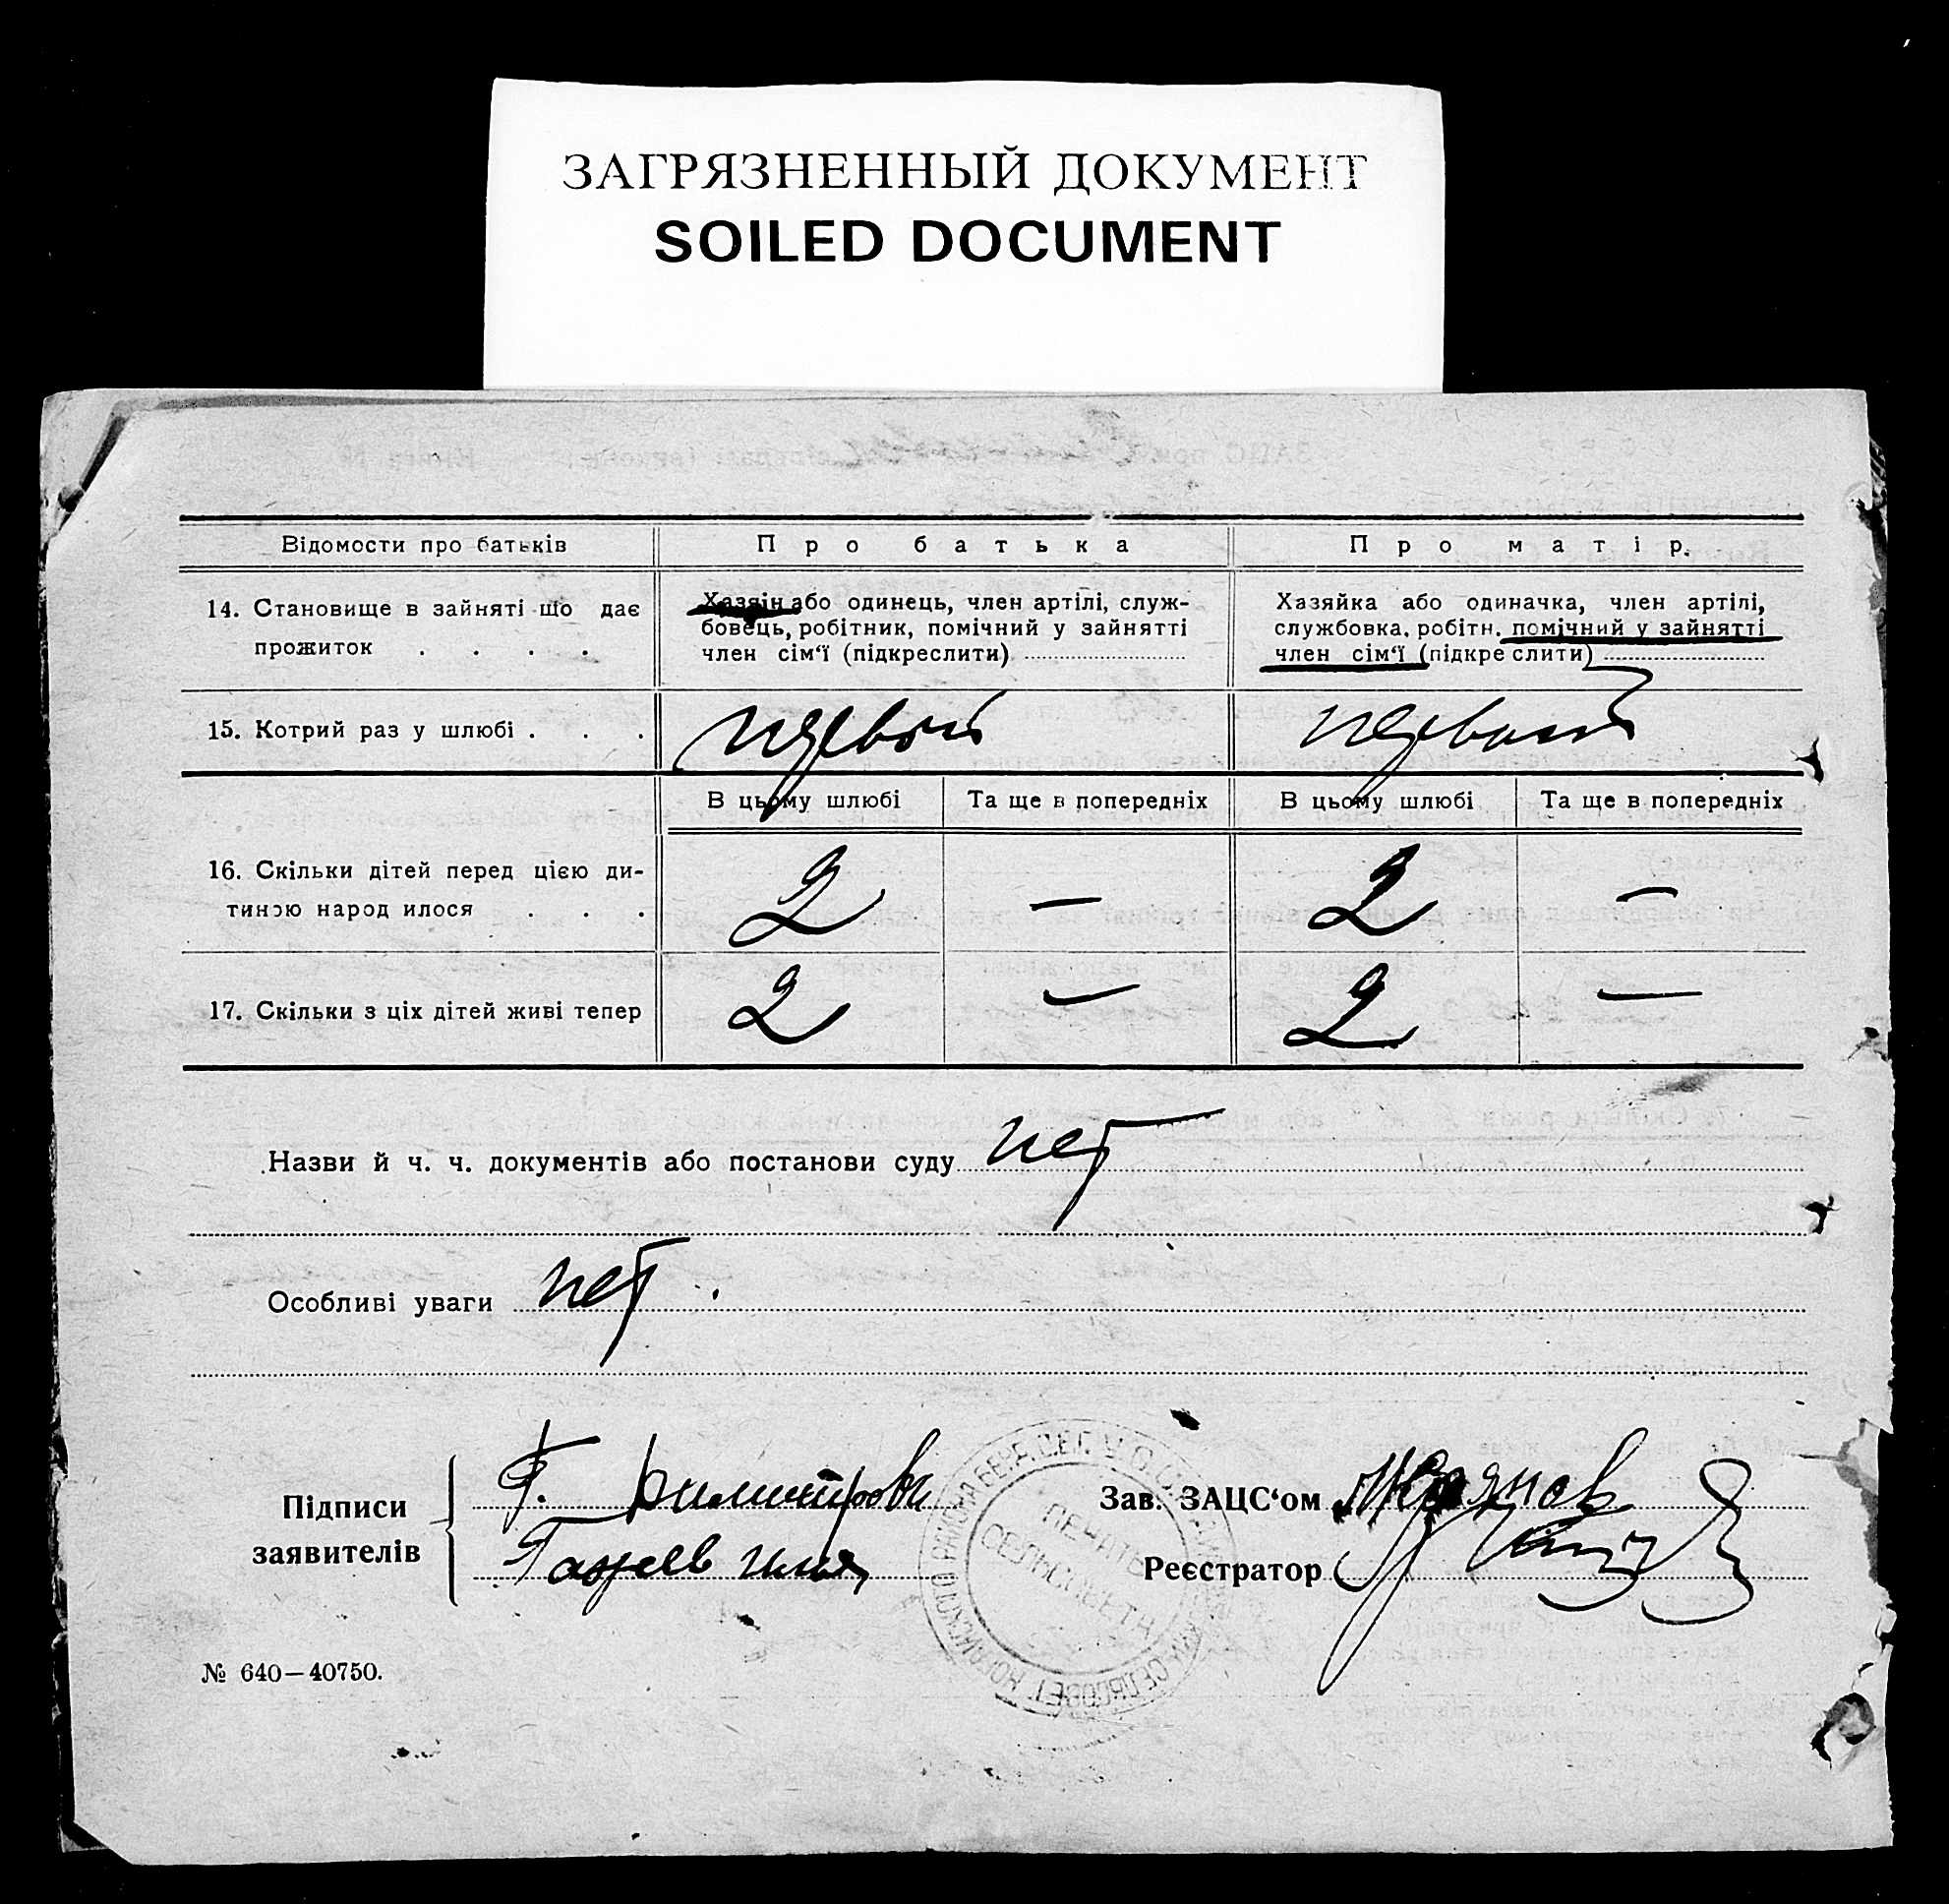 ЗАГРЯЗНЕННЫЙ ДОКУМЕНТ
SOILED DOCUMENT
Відомости про батьків
Про батька
Про матір.
14. Становище в зайняті що дає
прожиток . . . .
Хазяін або одинець, член артілі, служ-
бовець, робітник, помічний у зайнятті
член сім‘ї (підкреслити)
Хазяйка або одиначка, член артілі,
службовка, робітн. помічний у зайнятті
член сім‘ї (підкреслити)
15. Котрий раз у шлюбі . . .
первый
первый
В цьому шлюбі
Та ще в попередніх
В цьому шлюбі
Та ще в попередніх
16. Скільки дітей перед цією ди-
тиною народилося . . .
2 — 2 —
17. Скільки з ціх дітей живі тепер
2 — 2 —
Назви й ч. ч. документів або постанови суду нет
Особливі уваги нет.
Підписи
заявителів
Ф. Димитрова
Зав. ЗАЦС‘ом
Реєстратор
ПЕЧАТЬ
СЕЛЬСОВЕТА
№ 640—40750.